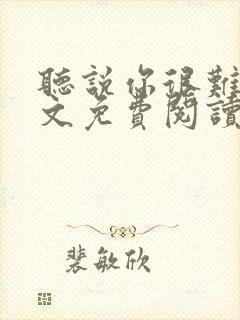 聽說你很難
文免費閱讀
裴敏欣